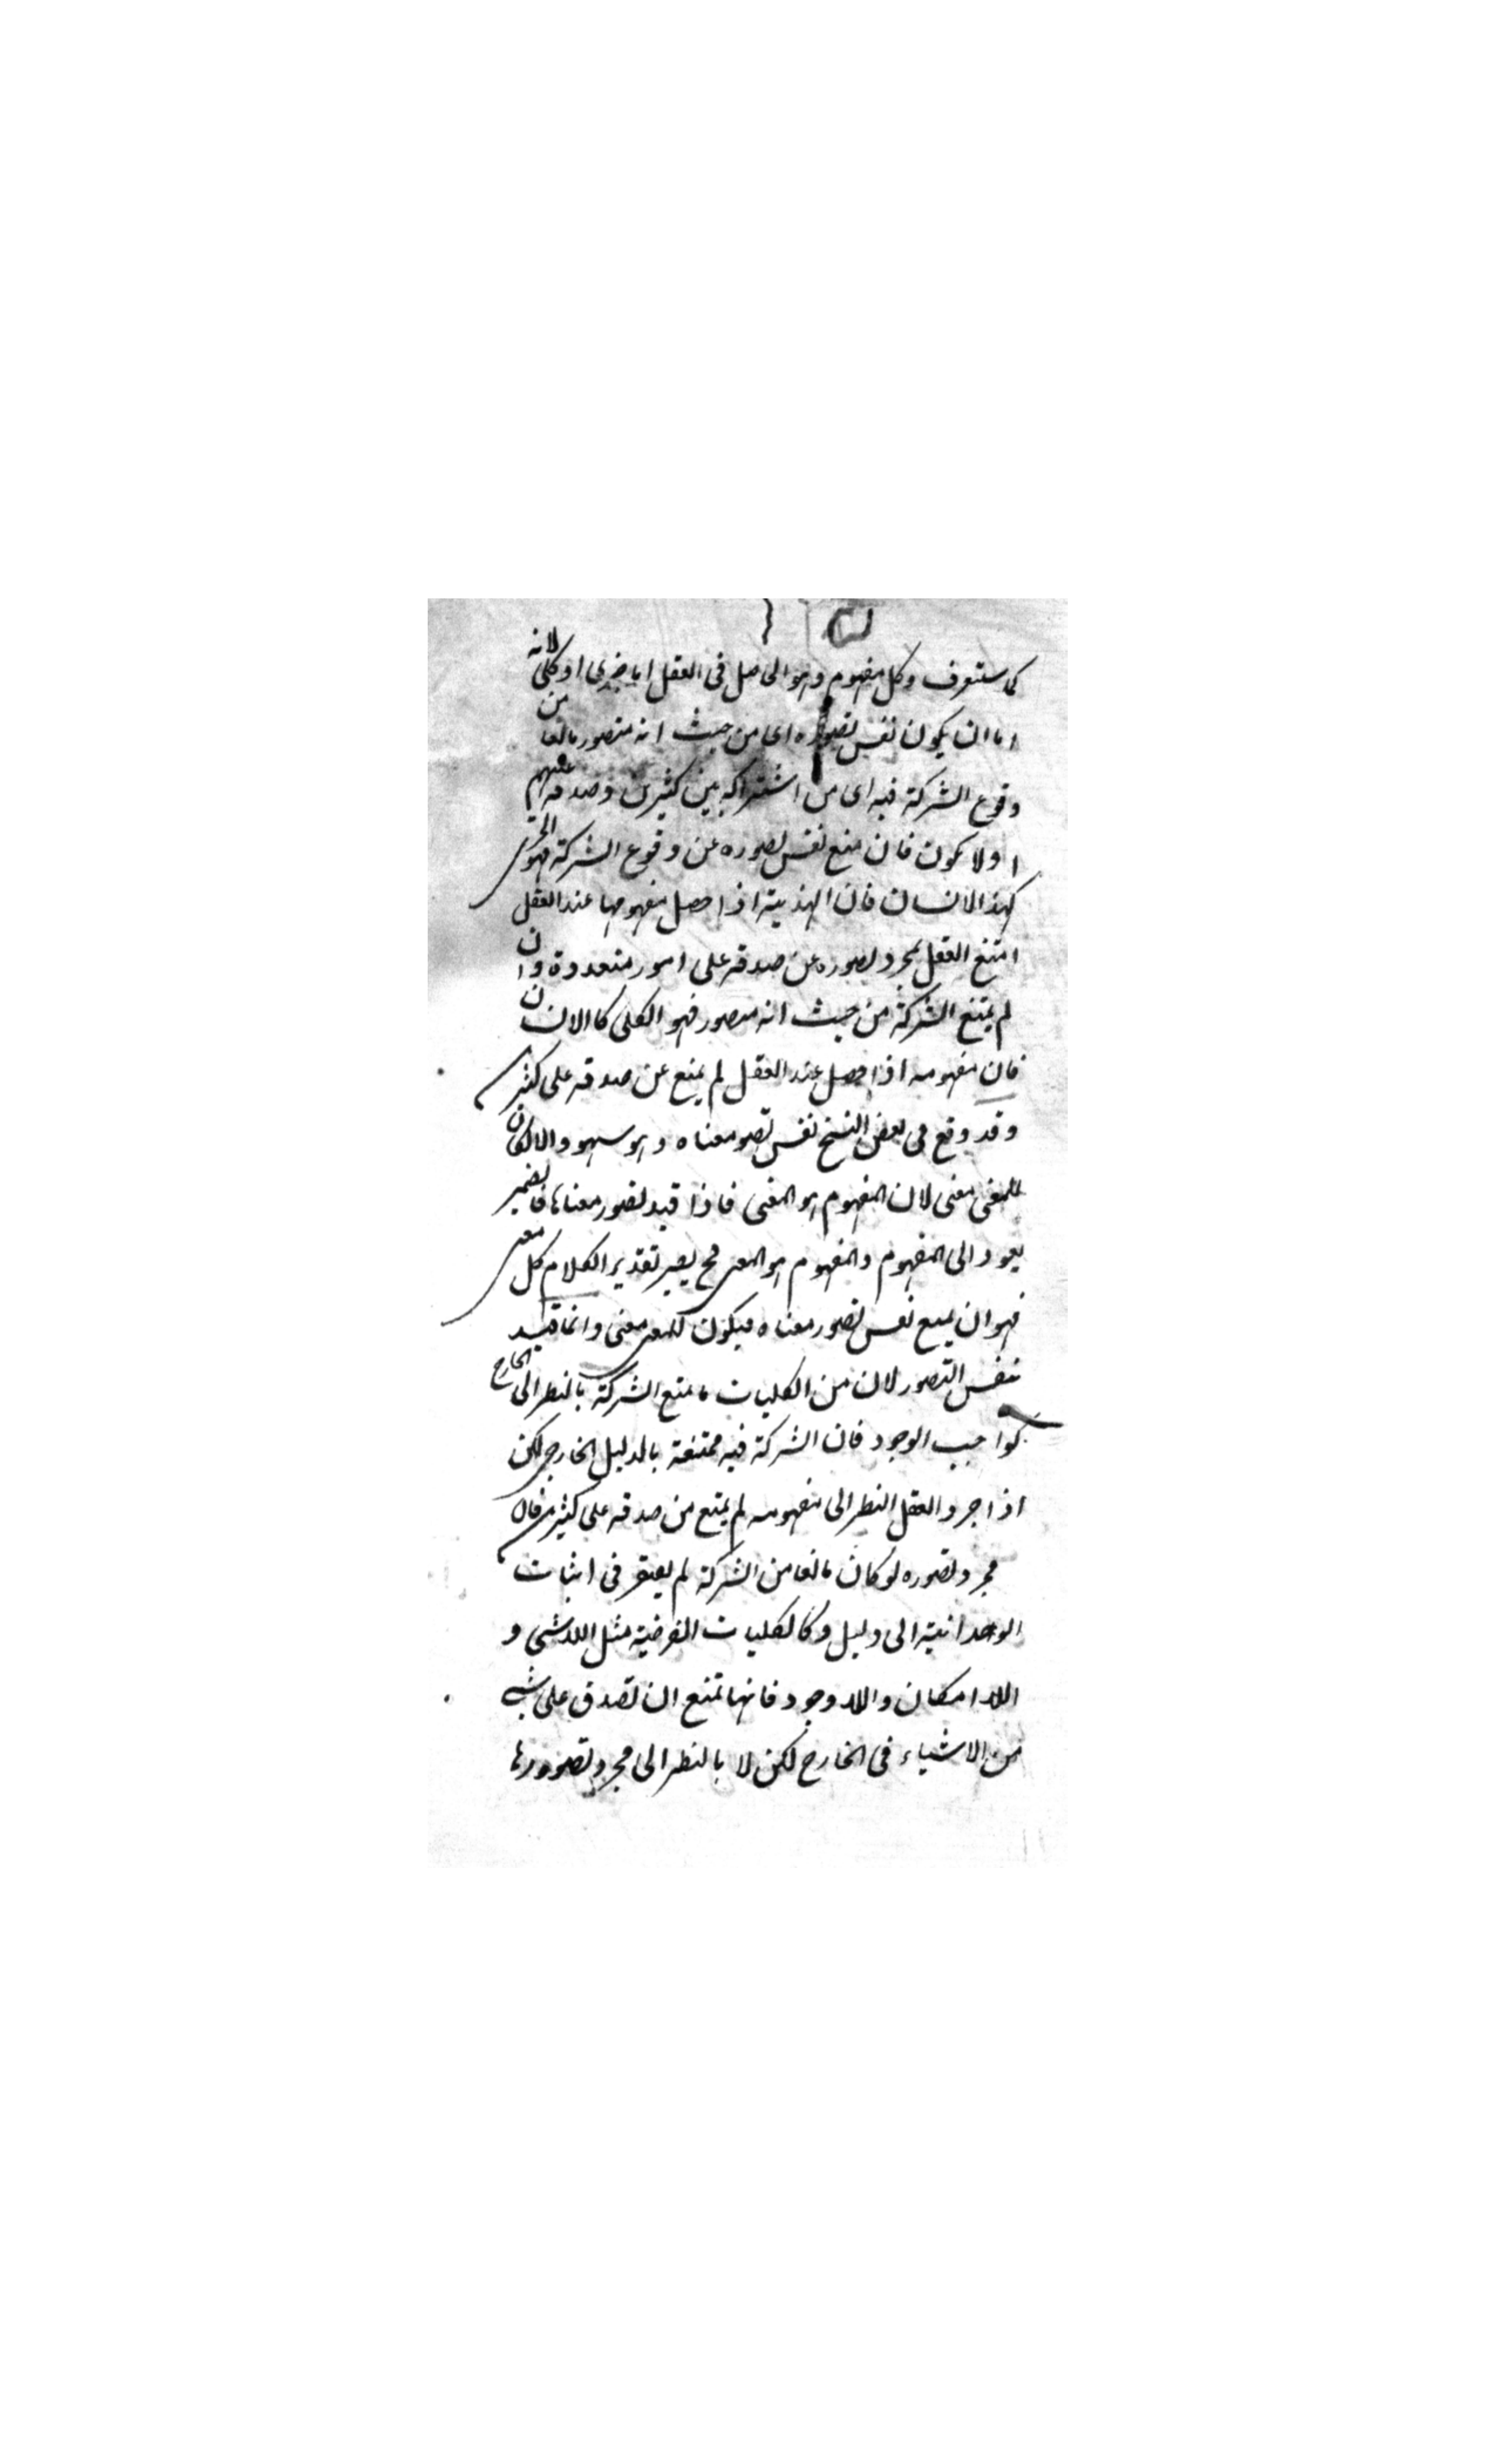 كما ستعرف وكل مفهوم وهو الحاصل فى العقل اما جزئى او كلى لانه
اما ان يكون نفس تصوره اى من حيث انه متصور مانعا من
وقوع الشركة فيه اى من اشتراكه بين كثيرين وصدقه عليهم
او لا يكون فان منع نفس تصوره عن وقوع الشركة فهو الجزئى
كهذا الانسان فان الهذية اذا حصل مفهومها عند العقل
امتنع العقل بمجرد تصوره عن صدقه على امور متعددة وان
لم يمتنع الشركة من حيث انه متصور فهو الكلى كالانسان
فان مفهومه اذا حصل عند العقل لم يمنع عن صدقه على كثيرين
وقد وقع فى بعض النسخ نفس تصو معناه وهو سهو والا لكان
للمعنى معنى لان المفهوم هو المعنى فاذا قيد تصور معناها فالضمير
يعود الى المفهوم والمفهوم هو المعنى فح يصير تقدير الكلام كل معنى
فهو ان يمنع نفس تصور معناه فيكون للمعنى معنى وانما قيد
بنفس التصور لان من الكليات ما يمنع الشركة بالنظر الى الخارج
كواجب الوجود فان الشركة فيه ممتنعة بالدليل الخارجى لكن
اذا جرد العقل النظر الى مفهومه لم يمتنع من صدقه على كثيرين فان
مجرد تصوره لو كان مانعا من الشركة لم يفتقر فى اثبات
الوحدانية الى دليل وكالكليات الفرضية مثل اللاشى و
اللا امكان واللاوجود فانها تمنع ان تصدق على شى
من الاشياء فى الخارج لكن لا بالنظر الى مجرد تصورها